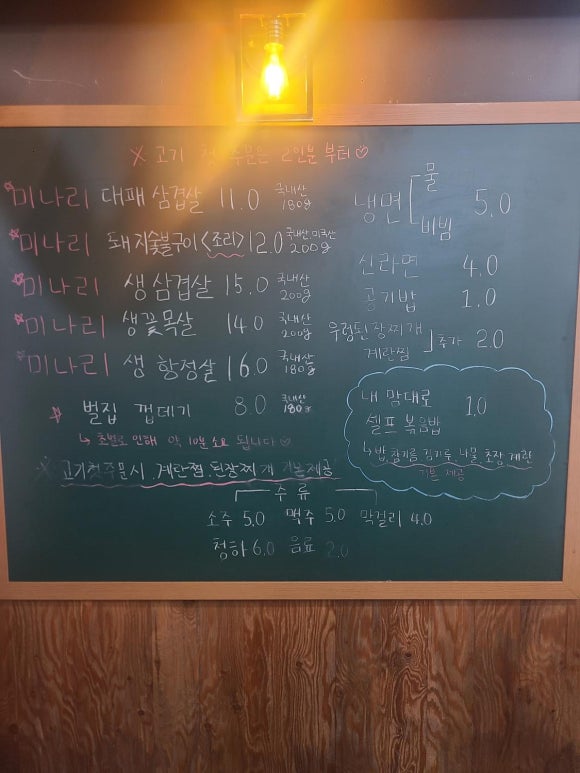 ※ 고기 첫 주문은 2인분 부터♡
☆미나리 대패 삼겹살 11.0 국내산 180g
☆미나리 돼지숯불구이<조리> 12.0 국내산,미국산 200g
☆미나리 생 삼겹살 15.0 국내산 200g
☆미나리 생꽃목살 14.0 국내산 200g
☆미나리 생 항정살 16.0 국내산 180g
☆ 벌집 껍데기 8.0 국내산 180g
↳ 초벌로 인해 약 10분 소요 됩니다♡
※ 고기첫주문시, 계란찜, 된장찌개 기본제공
냉면 물 비빔 5.0
신라면 4.0
공기밥 1.0
우렁된장찌개 계란찜 추가 2.0
내 맘대로 셀프 볶음밥 1.0
↳밥, 참기름, 김가루, 나물, 초장, 계란
기본 제공
주류
소주 5.0 맥주 5.0 막걸리 4.0
청하 6.0 음료 2.0